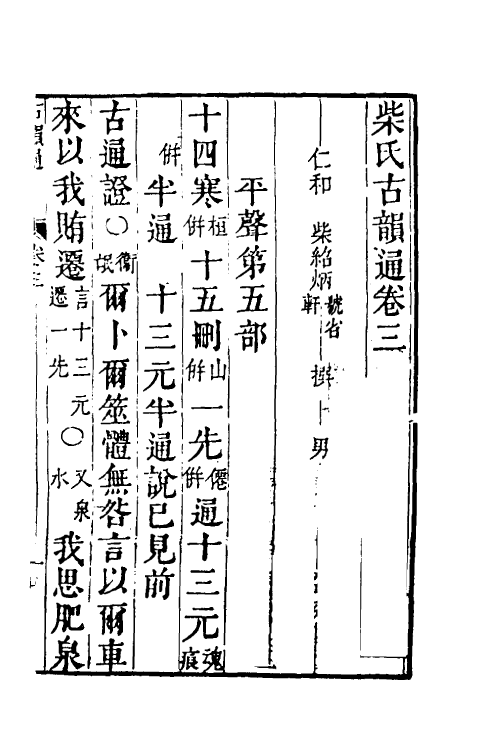 柴氏古韻通卷三
仁和 柴紹炳號省軒 撰 男
平聲第五部
十四寒桓併十五刪山併一先僊併通十三元魂痕
併半通 十三元半通說已見前
古通證〇衛氓爾卜爾筮體無咎言以爾車
來以我賄遷言十三元遷一先〇又泉水我思肥泉